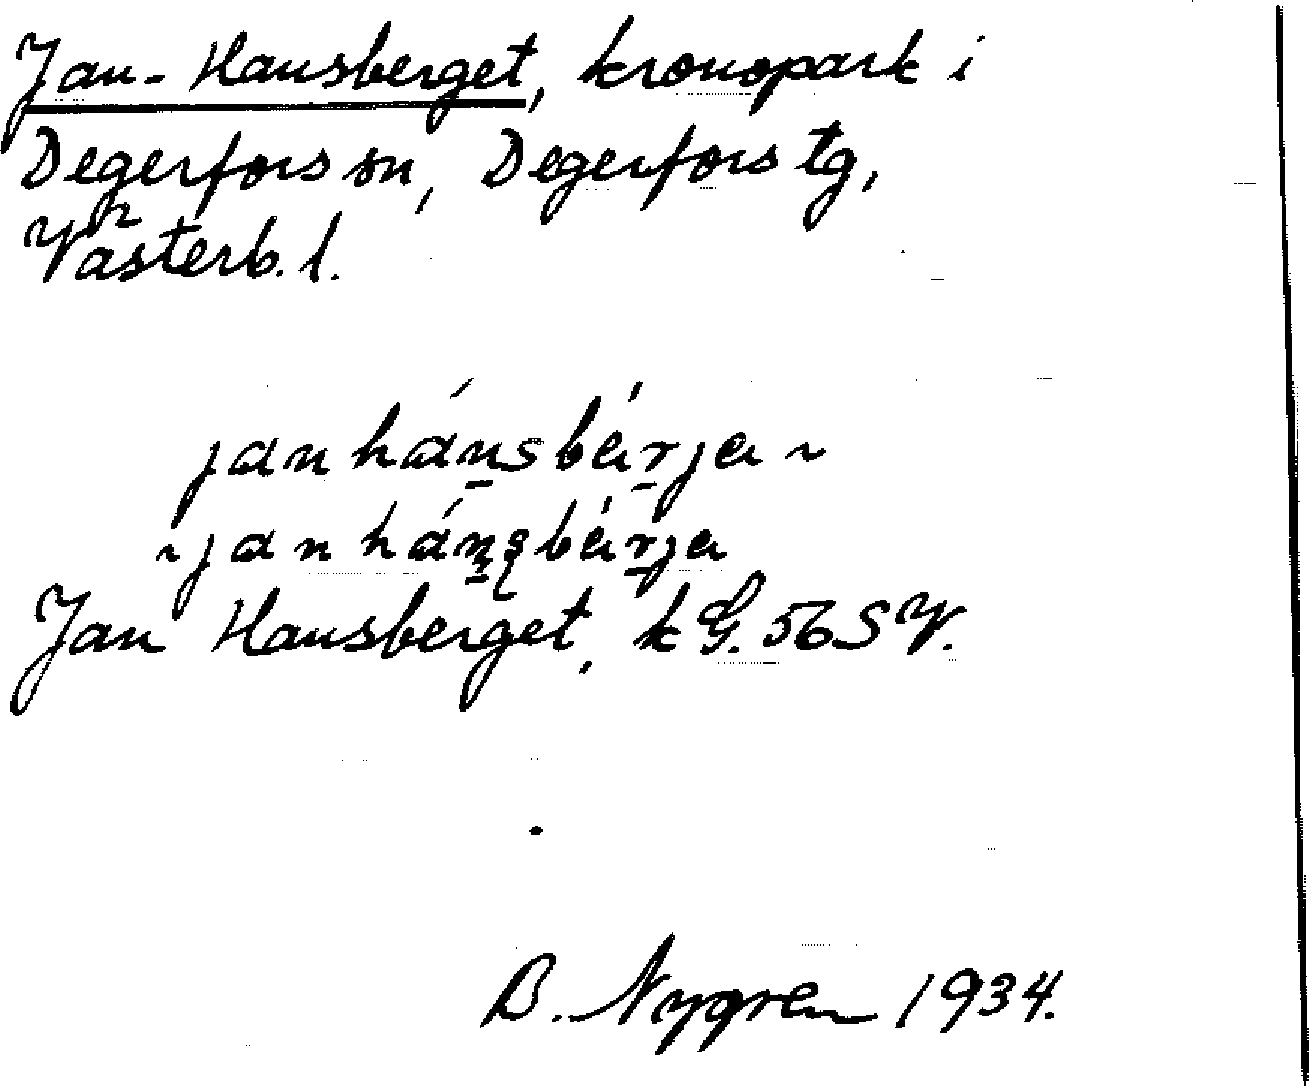 Jan-Hansberget, kronopark i
Degerfors sn, Degerfors tg,
Västerb. l.
jan hánsbárja ~
~ jan hánsbárja
Jan Hansberget, k G. 56 SV.
B. Nygren 1934.